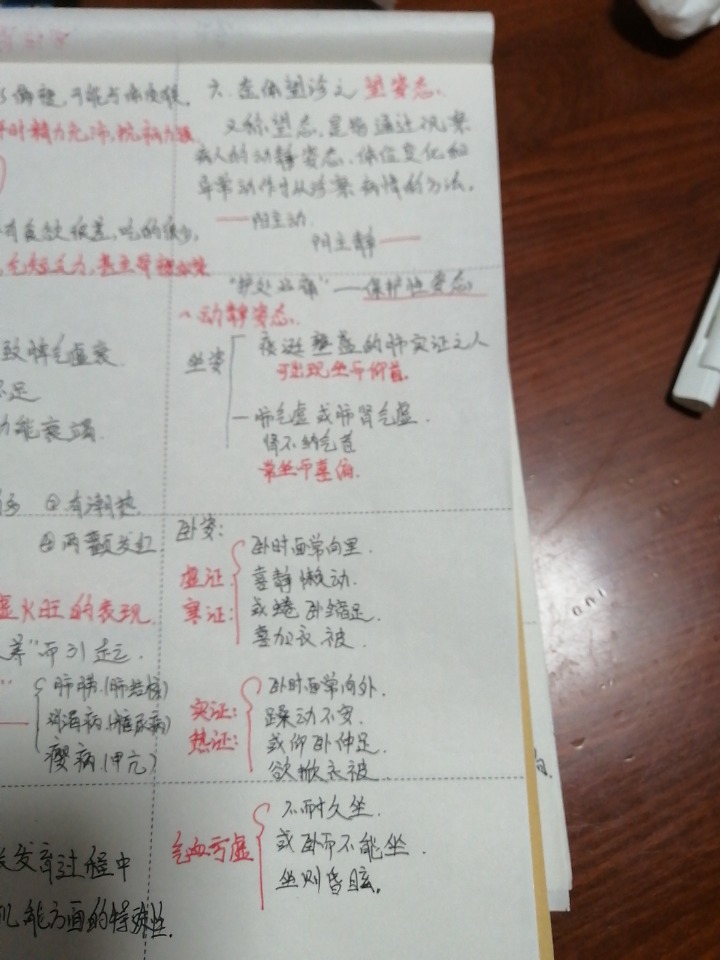 六、整体望诊之 望姿态、
又称望态,是指通过观察
病人的动静姿态、体位变化和
异常动作以诊察病情的方法。
—— 阳主动
阴主静 ——
"护处必痛" —— 保护性姿态
动静姿态、
坐姿
痰涎壅盛的肺实证之人
可出现坐而仰首。
— 肺气虚或肺肾气虚.
肾不纳气者
常坐而喜俯.
卧姿:
虚证.
寒证:
卧时面常向里.
喜静懒动.
或蜷卧缩足.
喜加衣被.
实证:
热证:
卧时面常向外.
躁动不安.
或仰卧伸足.
欲掀衣被
气血亏虚
不耐久坐.
或卧而不能坐.
坐则昏眩。
时精力充沛,抗病力强
有食欲很差,吃的很少,
气短乏力,甚至骨瘦如柴
致肺气虚衰.
不足
功能衰竭.
②有潮热.
④两颧发红
虚火旺的表现.
差"而引起.
肺痨.(肺结核)
消渴病.(糖尿病)
瘿病(甲亢)
发育过程中
机能方面的特殊性.